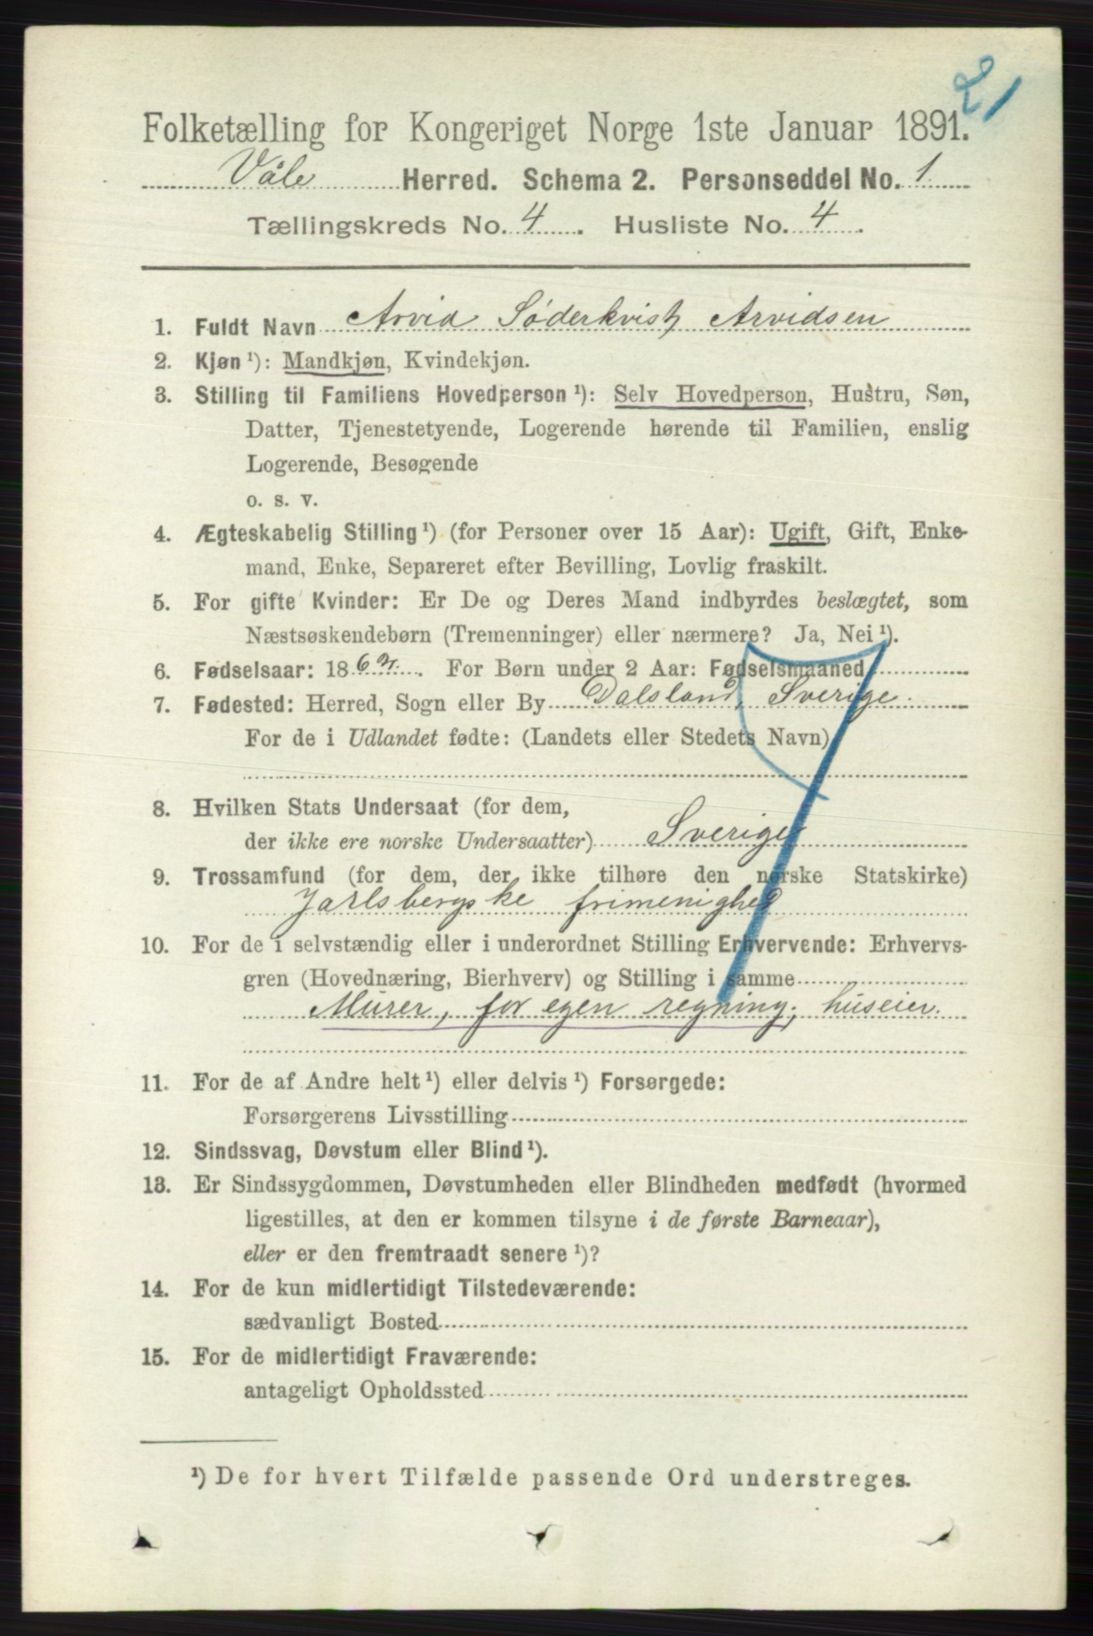 21
Folketælling for Kongeriget Norge 1ste Januar 1891.
Våle Herred. Schema 2. Personseddel No. 1
Tællingskreds No. 4. Husliste No. 4.
1. Fuldt Navn Arvid Søderkvist Arvidsen
2. Kjøn ¹): Mandkjøn, Kvindekjøn.
3. Stilling til Familiens Hovedperson ¹): Selv Hovedperson, Hustru, Søn,
Datter, Tjenestetyende, Logerende hørende til Familien, enslig
Logerende, Besøgende
o. s. v.
4. Ægteskabelig Stilling ¹) (for Personer over 15 Aar): Ugift, Gift, Enke-
mand, Enke, Separeret efter Bevilling, Lovlig fraskilt.
5. For gifte Kvinder: Er De og Deres Mand indbyrdes beslægtet, som
Næstsøskendebørn (Tremenninger) eller nærmere? Ja, Nei ¹).
6. Fødselsaar: 186 . For Børn under 2 Aar: Fødselsmaaned
7. Fødested: Herred, Sogn eller By Dalsland, Sverige.
For de i Udlandet fødte: (Landets eller Stedets Navn)
8. Hvilken Stats Undersaat (for dem,
der ikke ere norske Undersaatter) Sverige
9. Trossamfund (for dem, der ikke tilhøre den norske Statskirke)
Jarlsbergske frimenighed
10. For de i selvstændig eller i underordnet Stilling Erhvervende: Erhvervs-
gren (Hovednæring, Bierhverv) og Stilling i samme
Murer, for egen regning; huseier.
11. For de af Andre helt ¹) eller delvis ¹) Forsørgede:
Forsørgerens Livsstilling
12. Sindssvag, Døvstum eller Blind ¹).
13. Er Sindssygdommen, Døvstumheden eller Blindheden medfødt (hvormed
ligestilles, at den er kommen tilsyne i de første Barneaar),
eller er den fremtraadt senere ¹)?
14. For de kun midlertidigt Tilstedeværende:
sædvanligt Bosted
15. For de midlertidigt Fraværende:
antageligt Opholdssted
¹) De for hvert Tilfælde passende Ord understreges.